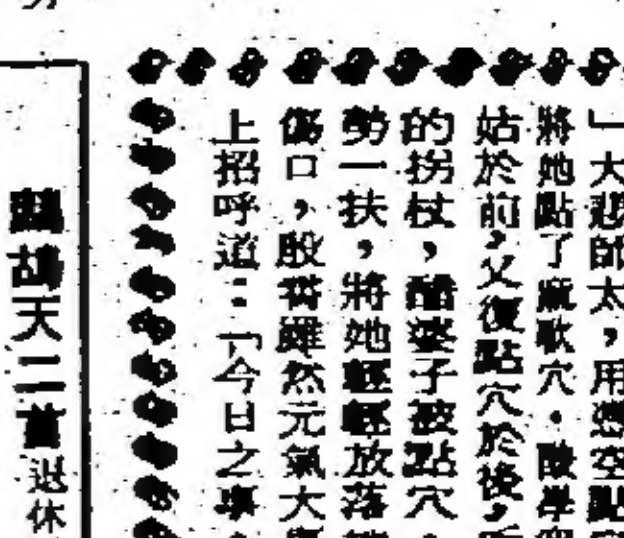 」大悲師太,用憑空點
將她點了麻軟穴。酸
姑於前,又復點穴於後,
的拐杖,醋婆子被點穴,
勢一扶,將她輕輕放落
傷口,殷 雖然元氣大
上招呼道:「今日之事,
鷓鴣天二首 退休